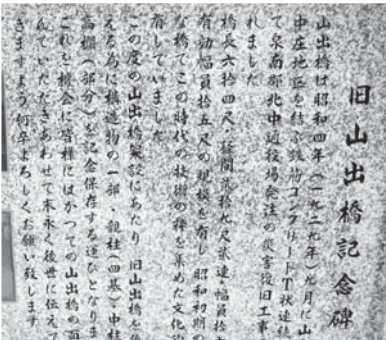 旧山出橋記念碑
山出橋は昭和四年(一九二九年)九月に山
中庄地区を結ぶ鉄筋コンクリートT状連続
て泉南郡北中通役場発注の災害復旧工事
れました
橋長六拾四尺・径間弐拾九尺弐連・幅員拾
有効幅員拾五尺の規模を有し昭和初期の
な橋でこの時代の技術の粋を集めた文化
有していました
この度の山出橋架設にあたり旧山出橋を
える為に構造物の一部・親柱(四基)・中柱
高欄(部分)を記念保存する運びとなりま
これを機会に皆様にはかつての山出橋の面
んでいただきあわせて末永く後世に伝えて
きますよう何卒よろしくお願い致します